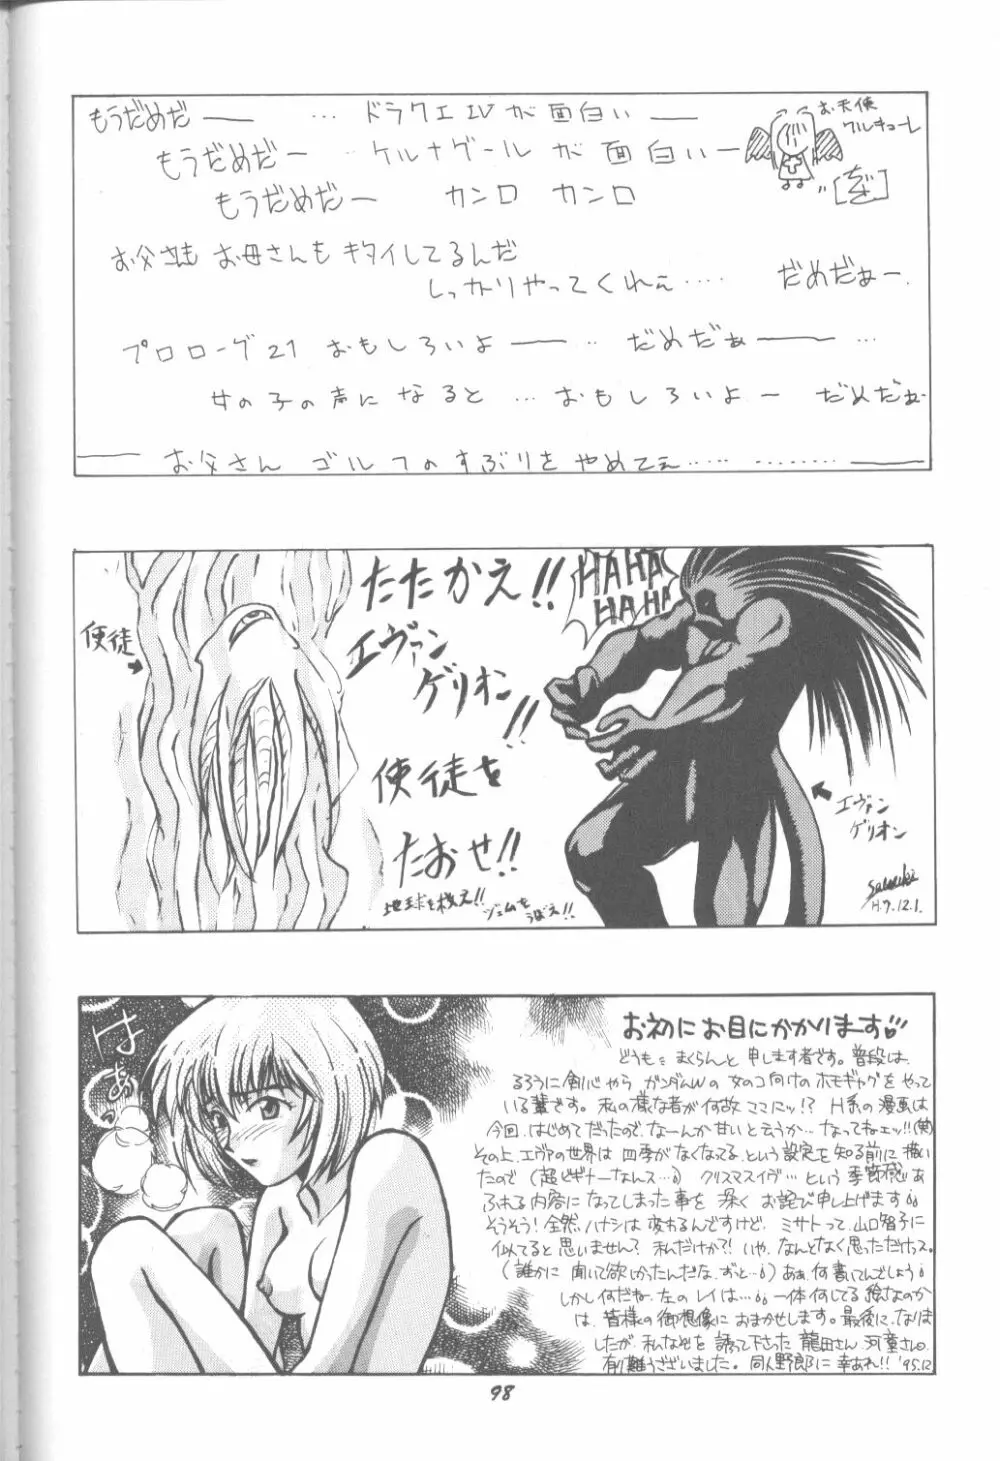 もうだめだ―― … ドラクエⅣが面白い――
お天使
ウルキューレ
もうだめだー … ケルナグールが面白いー
もうだめだー カンロ カンロ
お父さも お母さんも キタイしてるんだ
しっかりやってくれぇ…‥ だめだぁー.
プロローグ21 おもしろいよ――‥ だめだぁ――…
女の子の声に なると … おもしろいよー だめだぁー
――お父さん ゴルフのすぶりを やめてぇ…‥ ………――
使徒
たたかえ!!
エヴァン
ゲリオン!!
使徒を
たおせ!!
地球を救え!!
ジェムを
うばえ!!
HAHA
HAHA
エヴァン
ゲリオン
H.7.12.1.
はぁ
お初にお目にかかります
どうも まくらんと 申します者です。普段は、
るろうに剣心やら ガンダムWの 女のコ向けのホモギャグをやって
いる輩です。私の様な者が何故ココにッ!? H系の漫画は
今回、はじめてだったので、なーんか甘いと云うか… なってねェッ!!(笑)
その上、エヴァの世界は 四季がなくなってる、という設定を知る前に描い
たので(超ビギナーなんス…) クリスマスイヴ…という季節感あ
ふれる内容になってしまった事を 深く お詫び申し上げます
そうそう!全然、ハナシは変わるんですけど、ミサトって、山口智子に
似てると思いません?私だけか?!いや、なんとなく思っただけっス。
(誰かに聞いて欲しかったんだな、ずっと…) あぁ、何書いてんでしょう
しかし何だね、左のレイは… 一体何してる絵なのか
は、皆様の御想像におまかせします。最後に、なりま
したが、私なぞを誘って下さった 龍田さん、河童さん、
有難うございました。同人野郎に幸あれ!! '95.12
98